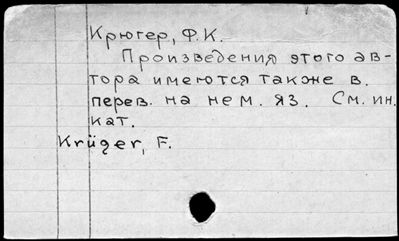 Крюгер, Ф.К.
Произведения этого ав-
тора имеются также в.
перев. на нем. яз. См. ин.
кат.
Krüger, F.